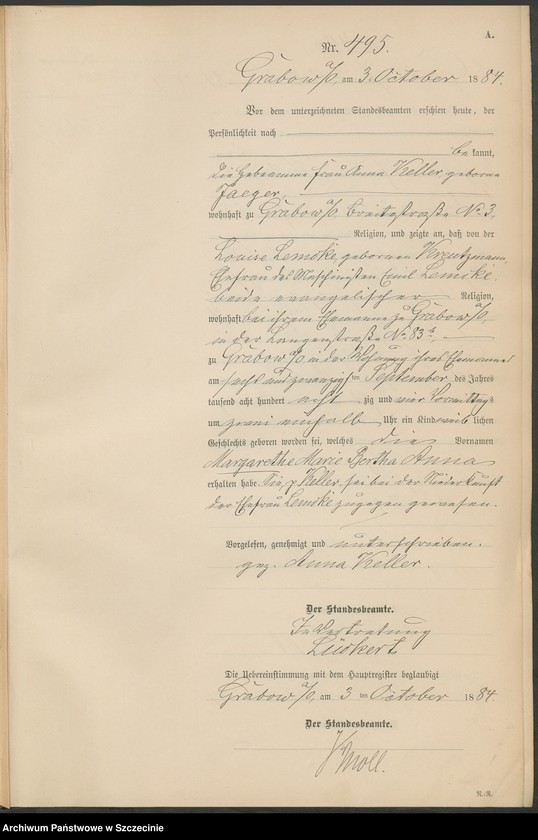 A.
Nr. 495.
Grabow a/O. am 3. October 1884.
Vor dem unterzeichneten Standesbeamten erschien heute, der
Persönlichkeit nach
be kannt,
die Hebeamme Frau Anna Keller, geborne
Jaeger,
wohnhaft zu Grabow a/O. Breitestraße No 3,
Religion, und zeigte an, daß von der
Louise Lemcke, gebornen Kreutzmann,
Ehefrau des Maschinisten Emil Lemcke,
beide evangelischer Religion,
wohnhaft bei ihrem Ehemanne zu Grabow a/O.
in der Langenstraße No 83b,
zu Grabow a/O. in der Wohnung ihres Ehemannes
am sechs und zwanzigsten September des Jahres
tausend acht hundert acht zig und vier Vormittags
um zwei einhalb Uhr ein Kind weib lichen
Geschlechts geboren worden sei, welches die Vornamen
Margarethe Marie Bertha Anna
erhalten habe. Die p. Keller sei bei der Niederkunft
der Ehefrau Lemcke zugegen gewesen.
Vorgelesen, genehmigt und unterschrieben.
gez. Anna Keller.
Der Standesbeamte.
In Vertretung
Lüdkert
Die Uebereinstimmung mit dem Hauptregister beglaubigt
Grabow a/O, am 3 ten October 1884.
Der Standesbeamte.
Knoll.
R.-R.
Archiwum Państwowe w Szczecinie